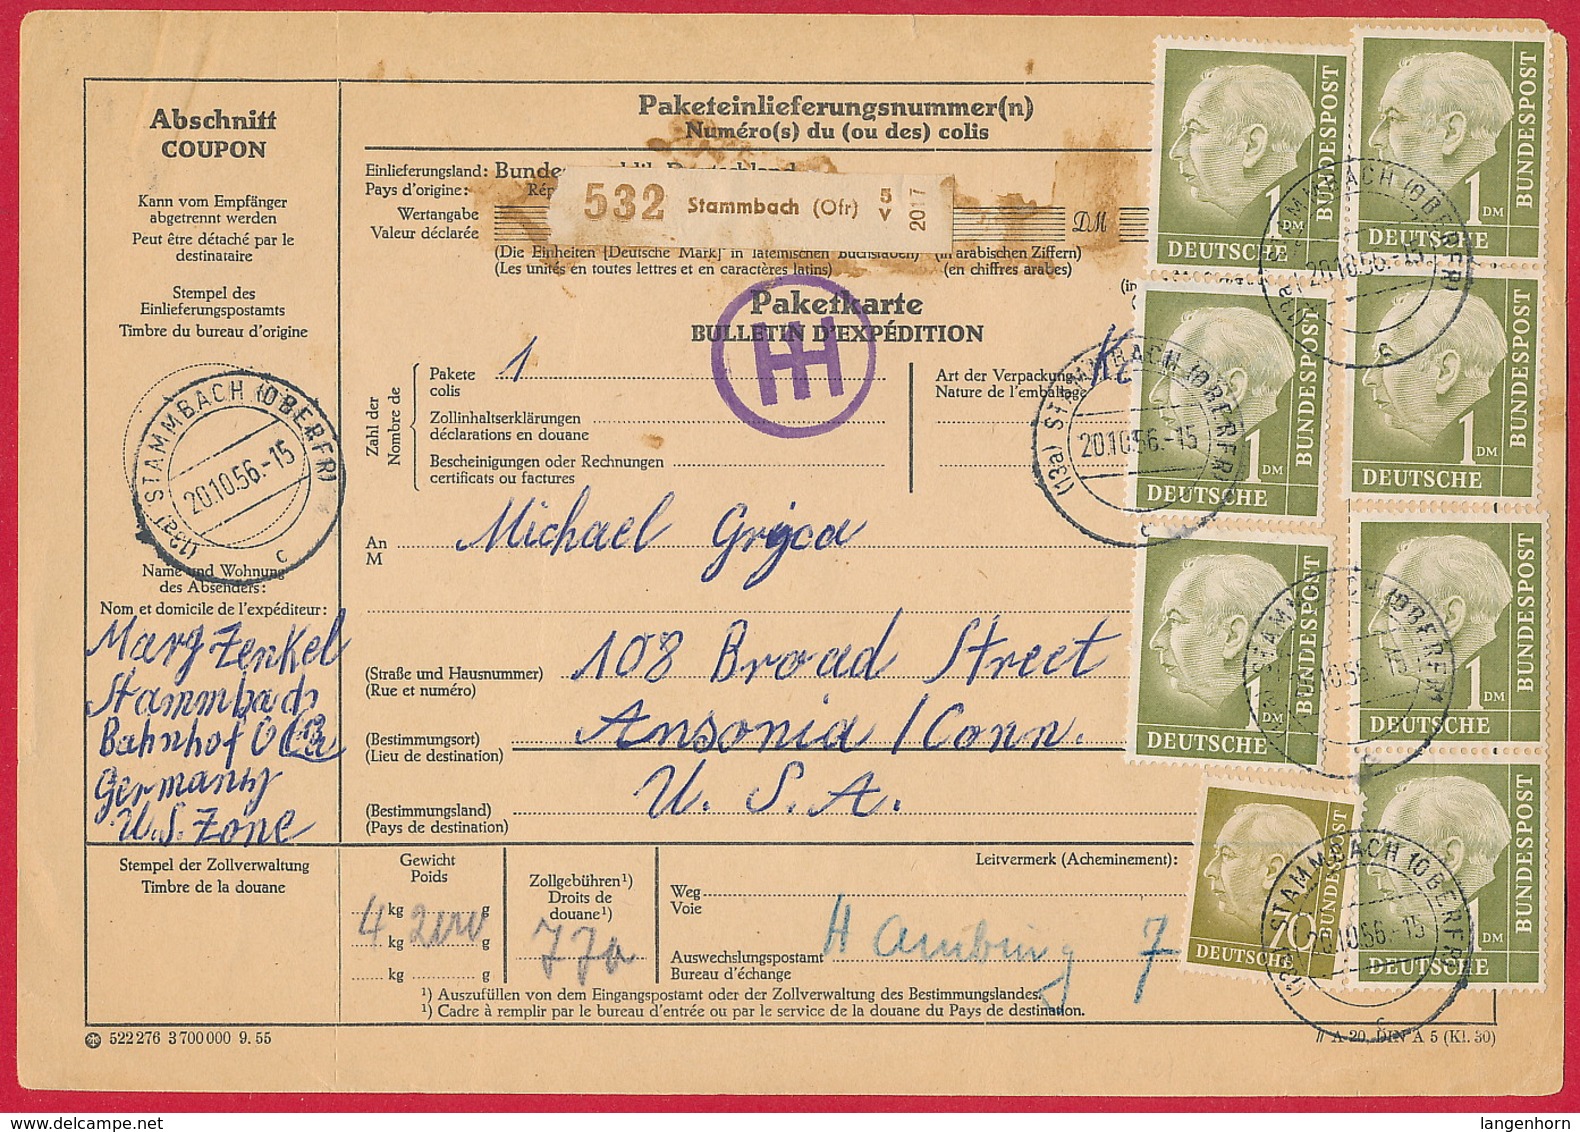 Abschnitt
COUPON
Kann vom Empfänger
abgetrennt werden
Peut être détaché par le
destinataire
Stempel des
Einlieferungspostamts
Timbre du bureau d'origine
(13a) STAMMBACH (OBERFR)
20.10.56.-15
c
Name und Wohnung
des Absenders:
Nom et domicile de l'expéditeur:
Marg Zenkel
Stammbach
Bahnhof
Germany
U.S. Zone
Stempel der Zollverwaltung
Timbre de la douane
Paketeinlieferungsnummer(n)
Numéro(s) du (ou des) colis
Einlieferungsland:
Pays d'origine:
Wertangabe
Valeur déclarée
532 Stammbach (Ofr) 5 V 2017
DM
(Die Einheiten [Deutsche Mark] in lateinischen Buchstaben) (in arabischen Ziffern)
(Les unités en toutes lettres et en caractères latins) (en chiffres arabes)
Paketkarte
BULLETIN D'EXPÉDITION
Zahl der
Nombre de
Pakete 1
colis
Zollinhaltserklärungen
déclarations en douane
Bescheinigungen oder Rechnungen
certificats ou factures
Art der Verpackung
Nature de l'emballage
An Michael
M
(Straße und Hausnummer) 108 Broad Street
(Rue et numéro)
(Bestimmungsort) Ansonia / Conn.
(Lieu de destination)
(Bestimmungsland) U. S. A.
(Pays de destination)
Gewicht
Poids
kg g
4 kg 200 g
kg g
Zollgebühren¹)
Droits de
douane¹)
Leitvermerk (Acheminement):
Weg
Voie
Auswechslungspostamt Hamburg 7
Bureau d'échange
¹) Auszufüllen von dem Eingangspostamt oder der Zollverwaltung des Bestimmungslandes.
¹) Cadre à remplir par le bureau d'entrée ou par le service de la douane du Pays de destination.
522 276 3 700 000 9. 55
A 20, DIN A 5 (Kl. 30)
1 DM
DEUTSCHE BUNDESPOST
1 DM
DEUTSCHE BUNDESPOST
1 DM
DEUTSCHE BUNDESPOST
1 DM
DEUTSCHE BUNDESPOST
1 DM
DEUTSCHE BUNDESPOST
1 DM
DEUTSCHE BUNDESPOST
1 DM
DEUTSCHE BUNDESPOST
50
DEUTSCHE BUNDESPOST
(13a) STAMMBACH (OBERFR)
20.10.56.-15
c
(13a) STAMMBACH (OBERFR)
20.10.56.-15
c
(13a) STAMMBACH (OBERFR)
20.10.56.-15
c
(13a) STAMMBACH (OBERFR)
20.10.56.-15
c
delcampe.net
langenhorn